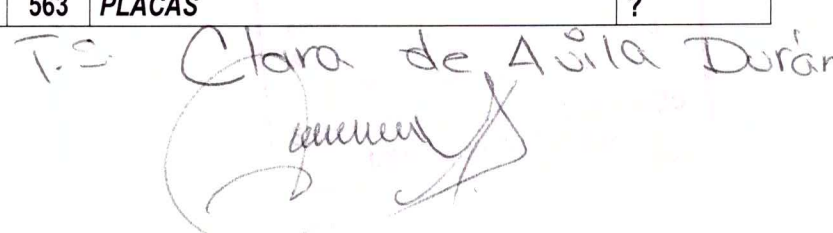 563 PLACAS ?
T.S. Clara de Avila Durán